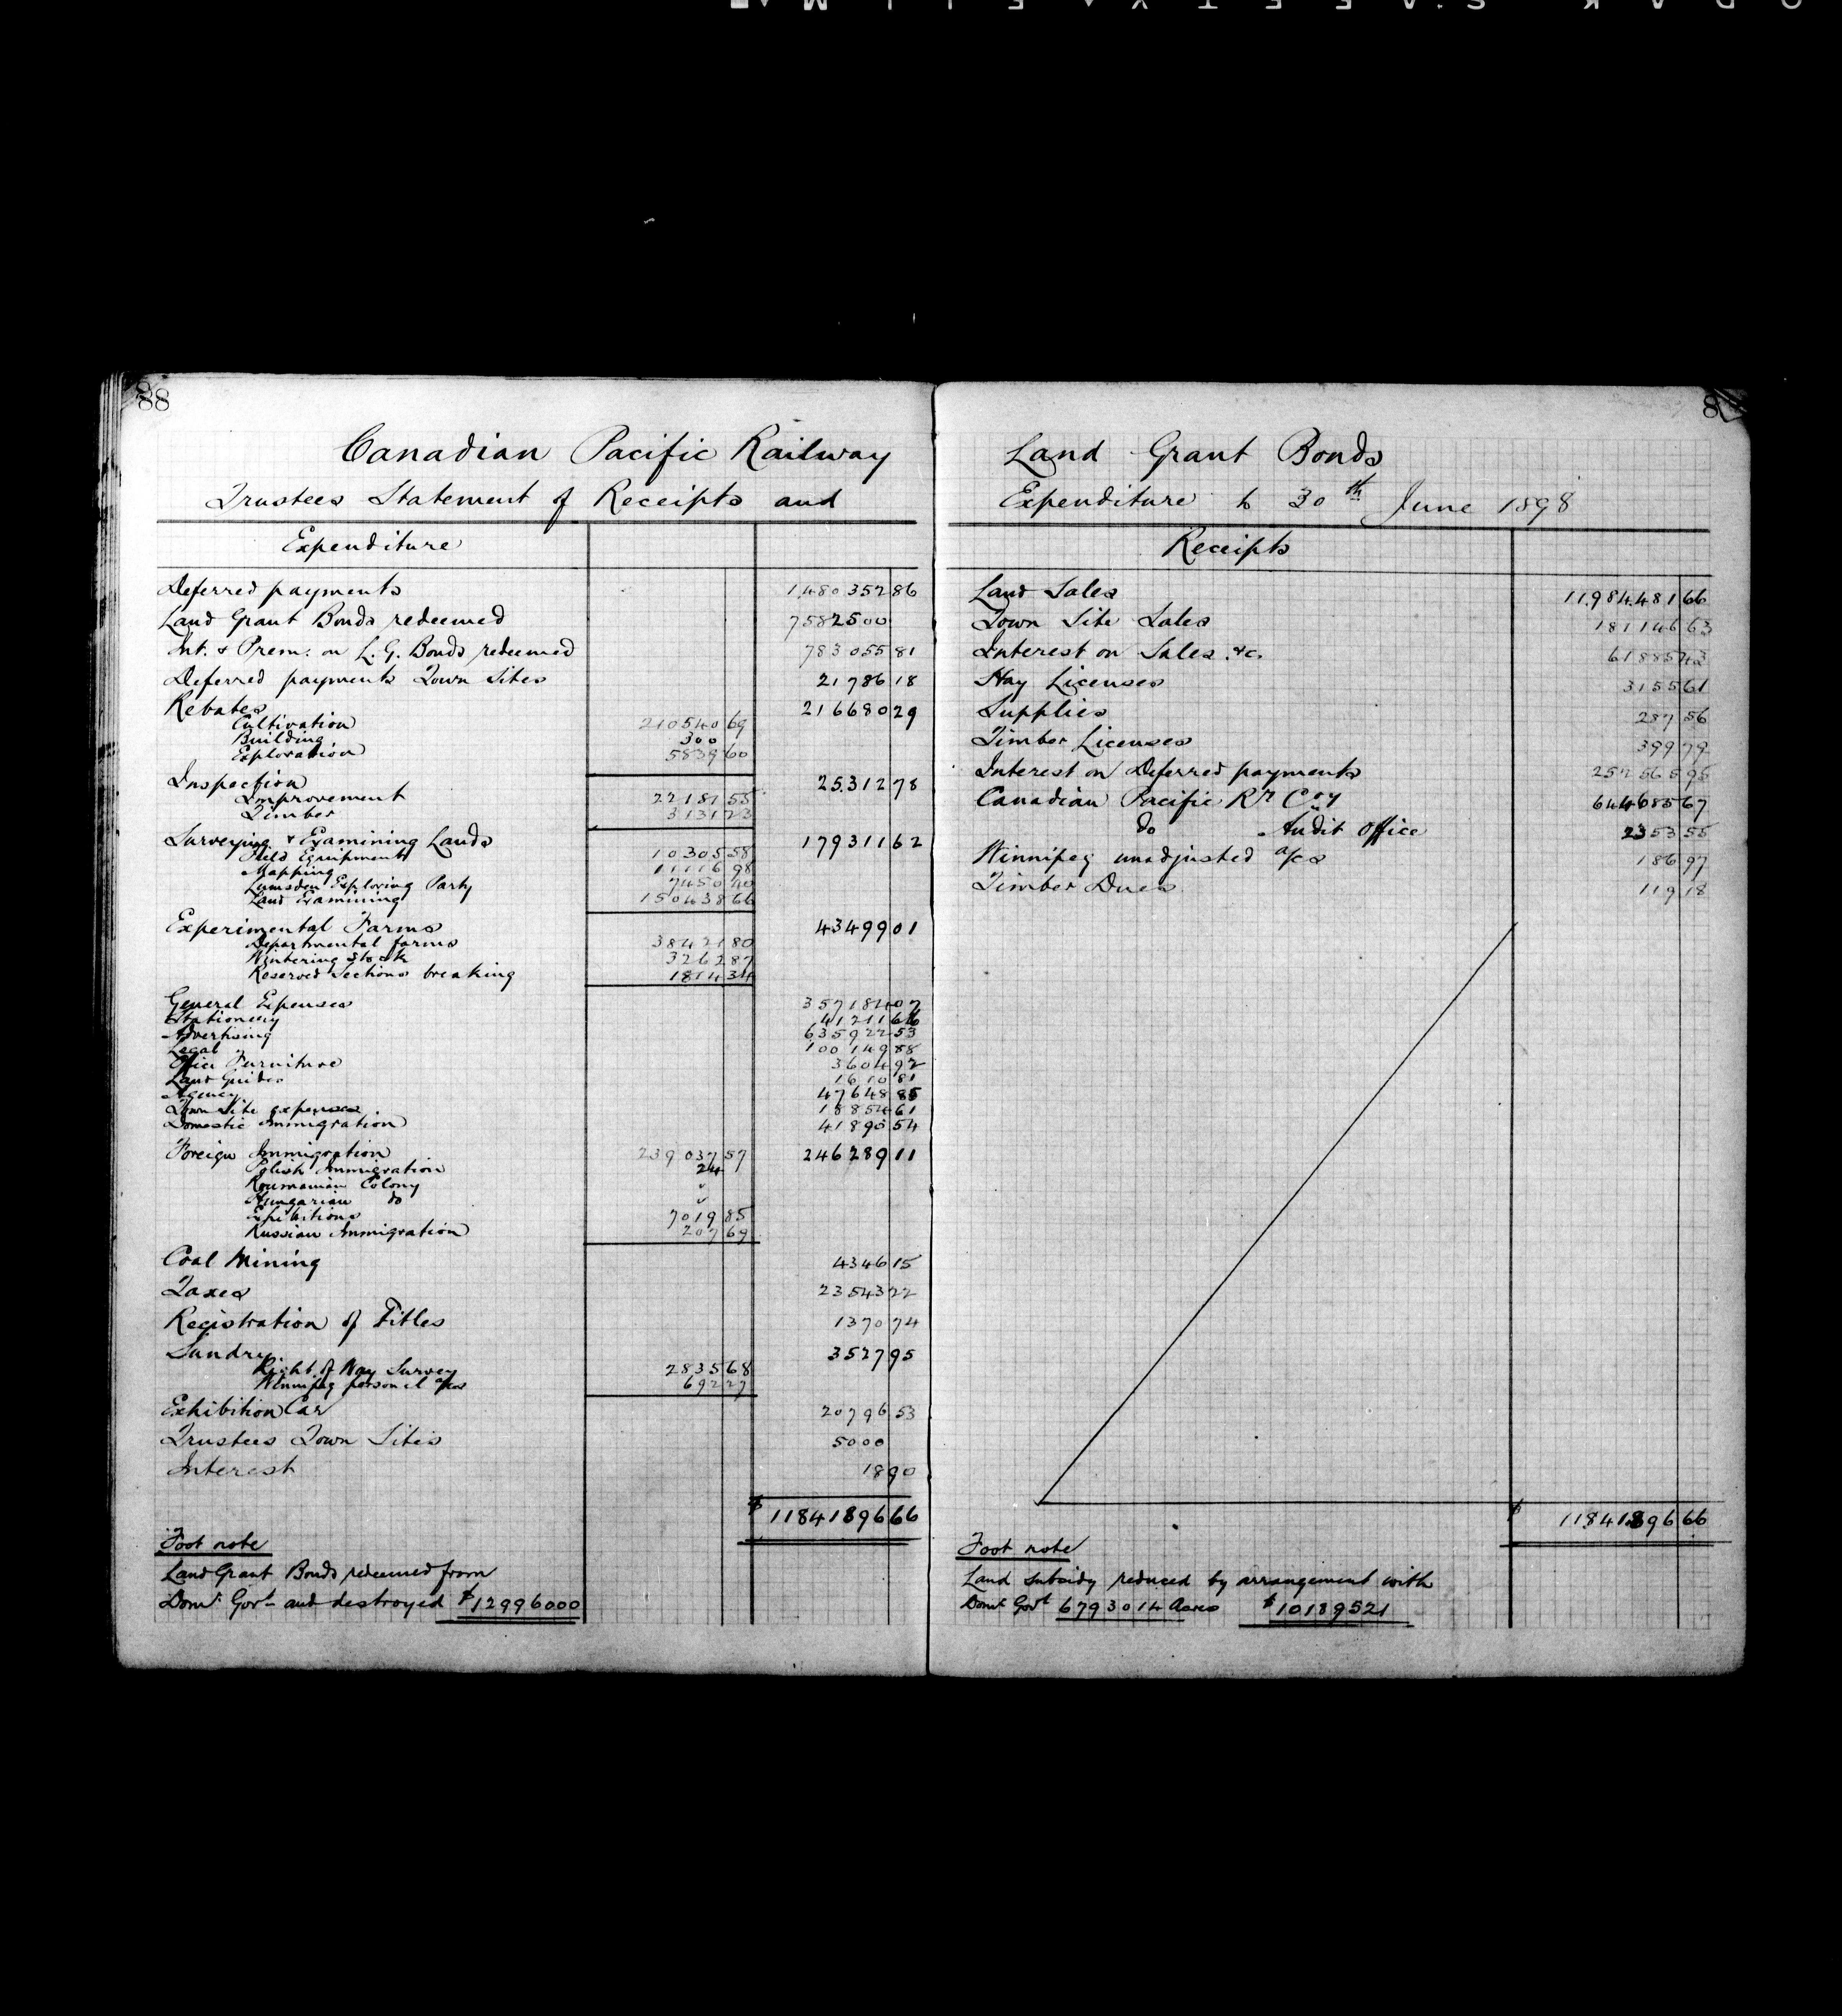 88
Canadian Pacific Railway
Trustees Statement of Receipts and
Expenditure
Deferred payments 1480352 86
Land Grant Bonds redeemed 7582500
Int. & Prem: on L. G. Bonds redeemed 783055 81
Deferred payments Town Sites 21786 18
Rebates 216680 29
Cultivation 210540 69
Building 300
Exploration 5839 60
Inspection 25312 78
Improvement 22181 55
Timber 3131 23
Surveying & Examining Lands 179311 62
Field Equipment 10305 58
Mapping 11116 98
Lumsden Exploring Party 7450 40
Land Examining 150438 66
Experimental Farms 43499 01
Departmental farms 38421 80
Wintering Stock 3262 87
Reserved Sections breaking 1814 34
General Expenses 357184 07
Stationery 41211 66
Advertising 635922 53
Legal 100149 88
Office Furniture 3604 92
Land Guides 1610 81
Agency 47648 85
Town Site expenses 18854 61
Domestic Immigration 41890 54
Foreign Immigration 239037 57 246289 11
Polish Immigration 24
Roumanian Colony "
Hungarian do "
Exhibitions 7019 85
Russian Immigration 207 69
Coal Mining 4346 15
Taxes 23543 22
Registration of Titles 1370 74
Sundry 3527 95
Right of Way Survey 2835 68
Winnipeg personal a/cs 692 27
Exhibition Car 20796 53
Trustees Town Sites 5000
Interest 18 90
$ 11841896 66
Foot note
Land Grant Bonds redeemed from
Domn: Govt and destroyed $12996000
Land Grant Bonds
Expenditure to 30th June 1898
Receipts
Land Sales 11.984.481 66
Town Site Sales 181146 63
Interest on Sales &c. 61885 43
Hay Licenses 3155 61
Supplies 287 56
Timber Licenses 399 79
Interest on Deferred payments 252565 95
Canadian Pacific Ry Coy 644685 67
do Audit Office 2353 55
Winnipeg unadjusted a/cs 186 97
Timber Dues 119 18
$ 11841896 66
Foot note
Land subsidy reduced by arrangement with
Domn Govt 6793014 Acres $10189521